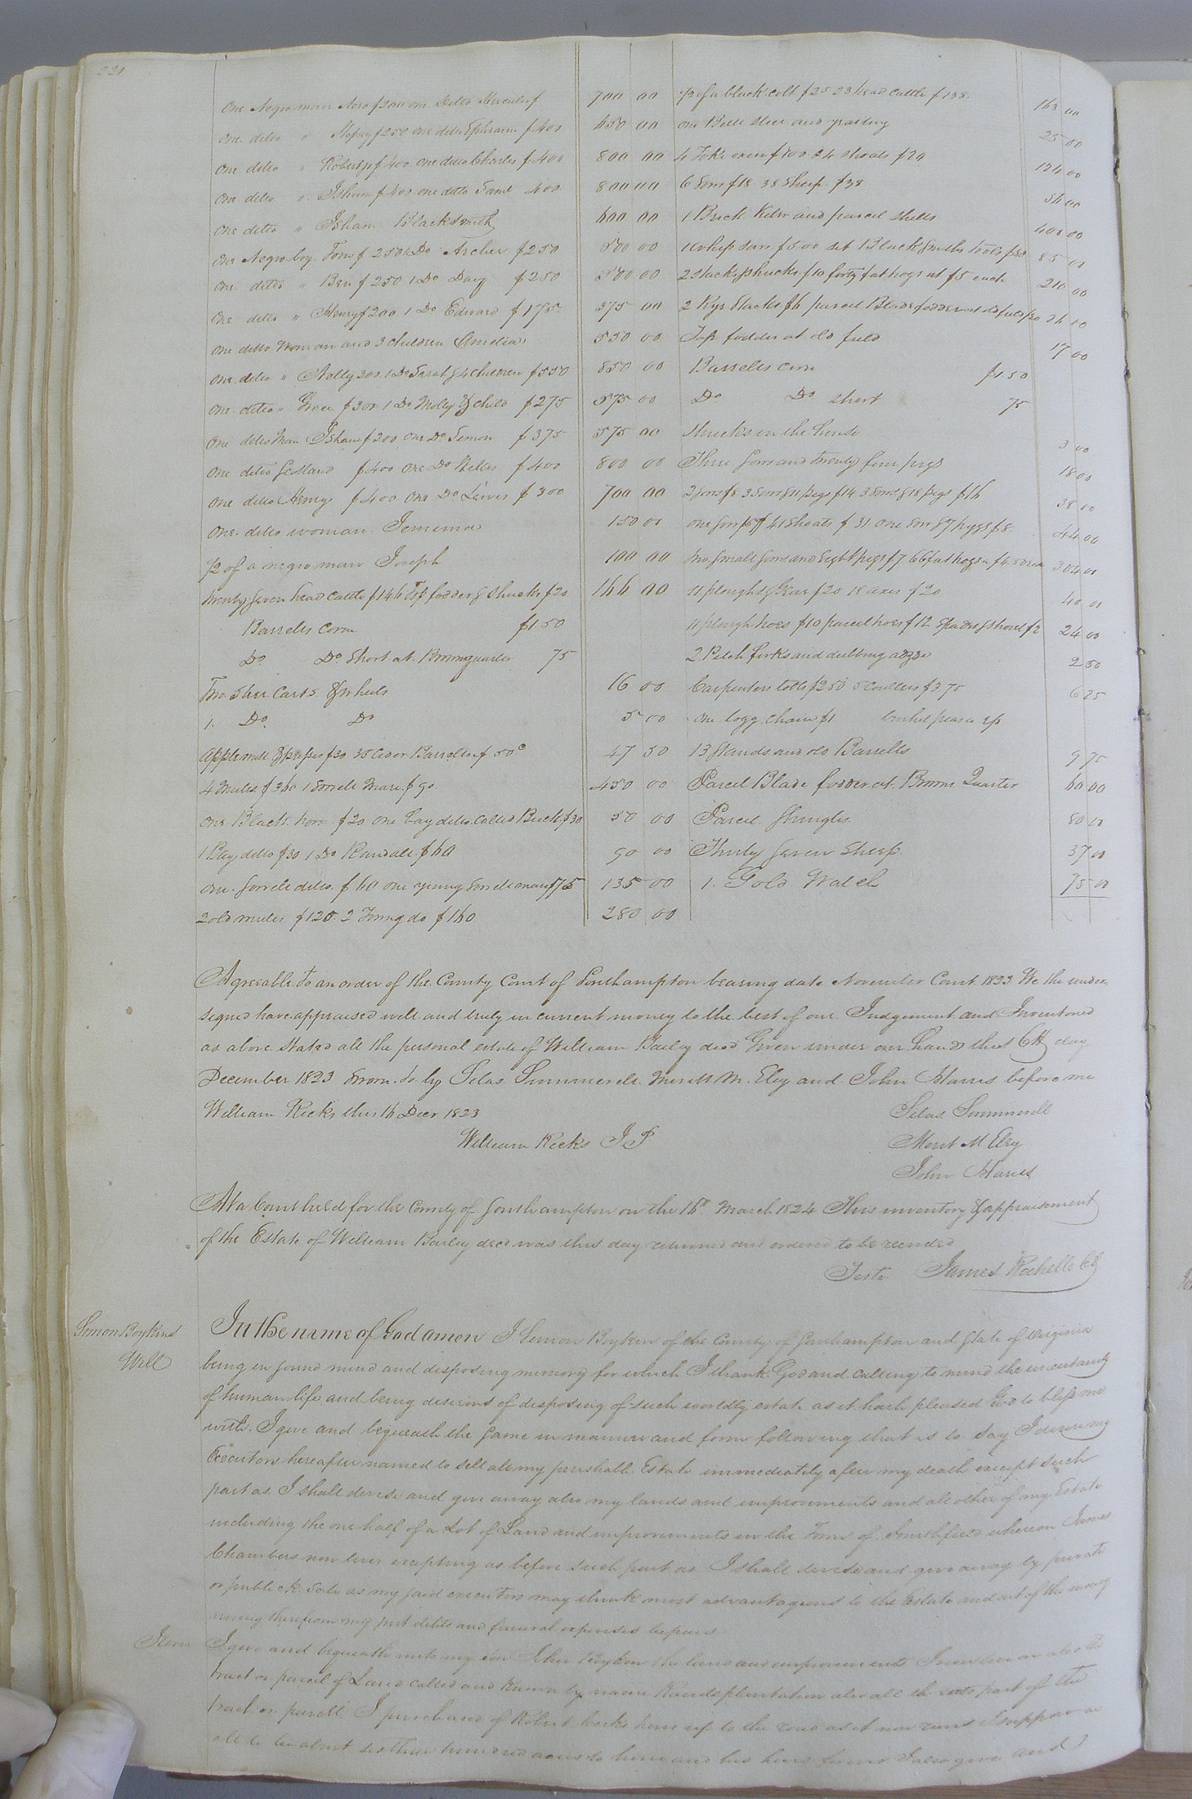 221
One Negro man Asa $300 one ditto Hercules $ 700 00
one ditto " $250 one ditto Ephraim $400 650 00
One ditto " Robert $400 one ditto Charles $400 800 00
One ditto " Isham $400 one ditto Saml 400 800 00
One ditto " Isham Blacksmith 600 00
One Negro boy Tom $250 1 Do Archer $250 500 00
one ditto " Ben $250 1 Do Davy $250 500 00
One ditto " Henry $200 1 Do Edward $175 375 00
one ditto Woman and 3 children Amelia 550 00
One ditto " Milly 300 1 Do Sarah & 4 children $550 850 00
One ditto " Grace $300 1 Do Molly & child $275 575 00
One ditto Man Isham $200 one Do Simon $375 575 00
One ditto Scotland $400 one Do $400 800 00
One ditto Henry $400 one Do Lewis $300 700 00
One ditto woman Jemima 150 00
1/2 of a negro man Joseph 100 00
Twenty seven head cattle $146 Top fodder & Shucks $20 166 00
Barrells corn $150
Do Do Short at Brown quarter 75
Two Steer Carts & wheels 16 00
1 Do Do 5 00
Apple mill & press $30 35 Cider Barrells $ 50c 47 50
4 Mules $360 1 Sorrele Mare $90 450 00
One Black horse $20 one bay ditto called Buck $30 50 00
1 Bay ditto $30 1 Do Randall $60 90 00
One Sorrele ditto $60 one young Sorrele mare $75 135 00
2 old mules $120 2 Young do $160 280 00
1/2 of a black colt $25 23 head cattle $138 163 00
one Bull steer and yearling 25 00
4 Yoke oxen $100 24 shoats $24 124 00
6 Sows $18 38 Sheep $38 56 00
1 Brick Kiln and parcel shells 400 00
1 whip saw $5 00 set Blacksmiths tools $80 85 00
2 stacks shucks $10 forty fat hogs at $5 each 210 00
2 Rye Stacks $6 parcel Blade fodder at old field $20 26 00
Top fodder at old field 17 00
Barrells corn $150
Do Do short 75
Shucks in the house 3 00
Three Sows and twenty four pigs 18 00
2 Sows $8 3 Sows & 11 pigs $14 3 Sows & 18 pigs $16 38 00
one Sow $ 41 Shoats $31 one Sow & 7 pigs $8 44 00
Two Small Sows and Eight pigs $7 66 fat hogs at $4.50 304 00
11 ploughs & Gear $20 18 axes $20 40 00
11 plough hoes $10 parcel hoes $12 Spades & shovel $2 24 00
2 Pitch forks and dubbing adze 2 50
Carpenters tools $2 50 5 Coulters $3 75 6 25
one logg chain $1
13 Stands and old Barrells 9 75
Parcel Blade fodder at Browns Quarter 60 00
Parcel Shingles 80 00
Thirty Seven Sheep 37 00
1 Gold Watch 75 00
Agreeable to an order of the County Court of Southampton bearing date November Court 1823 We the under
signed have appraised well and truly in current money to the best of our Judgement and Inventoried
as above Stated all the personal estate of William Bailey decd Given under our hands this 6th day
December 1823 Sworn to by Silas Summerell Merit M. Eley and John Harris before me
William Ricks this 16 Decr 1823 Silas Summerell
William Ricks J P Merit M Eley
John Harris
At a Court held for the County of Southampton on the 16th March 1824 This inventory & appraisement
of the Estate of William Bailey decd was this day returned and ordered to be recorded
Teste James Rochelle Clk
Simon Boykins
Will
In the name of God amen I Simon Boykin of the County of Southampton and State of Virginia
being in sound mind and disposing memory for which I thank God and calling to mind the uncertainty
of human life and being desirous of disposing of such worldly estate as it hath pleased God to bless me
with. I give and bequeath the same in manner and form following that is to say I desire my
Executors hereafter named to sell all my perishable Estate immediately after my death except such
part as I shall devise and give away also my lands and improvements and all other of my Estate
including the one half of a Lot of Land and improvements in the Town of Smithfield whereon James
Chambers now lives excepting as before such part as I shall devise and give away by private
or publick sale as my said executors may think most advantageous to the Estate and out of the money
arising therefrom my just debts and funeral expences be paid
Item I give and bequeath unto my son John Boykin the land and improvements I now live on also the
tract or parcel of Land called and known by name plantation also all the part of the
tract or parcell I purchased of Robert up to the road as it now runs I suppose in
all to be about three hundred acres to him and his heirs forever I also give and